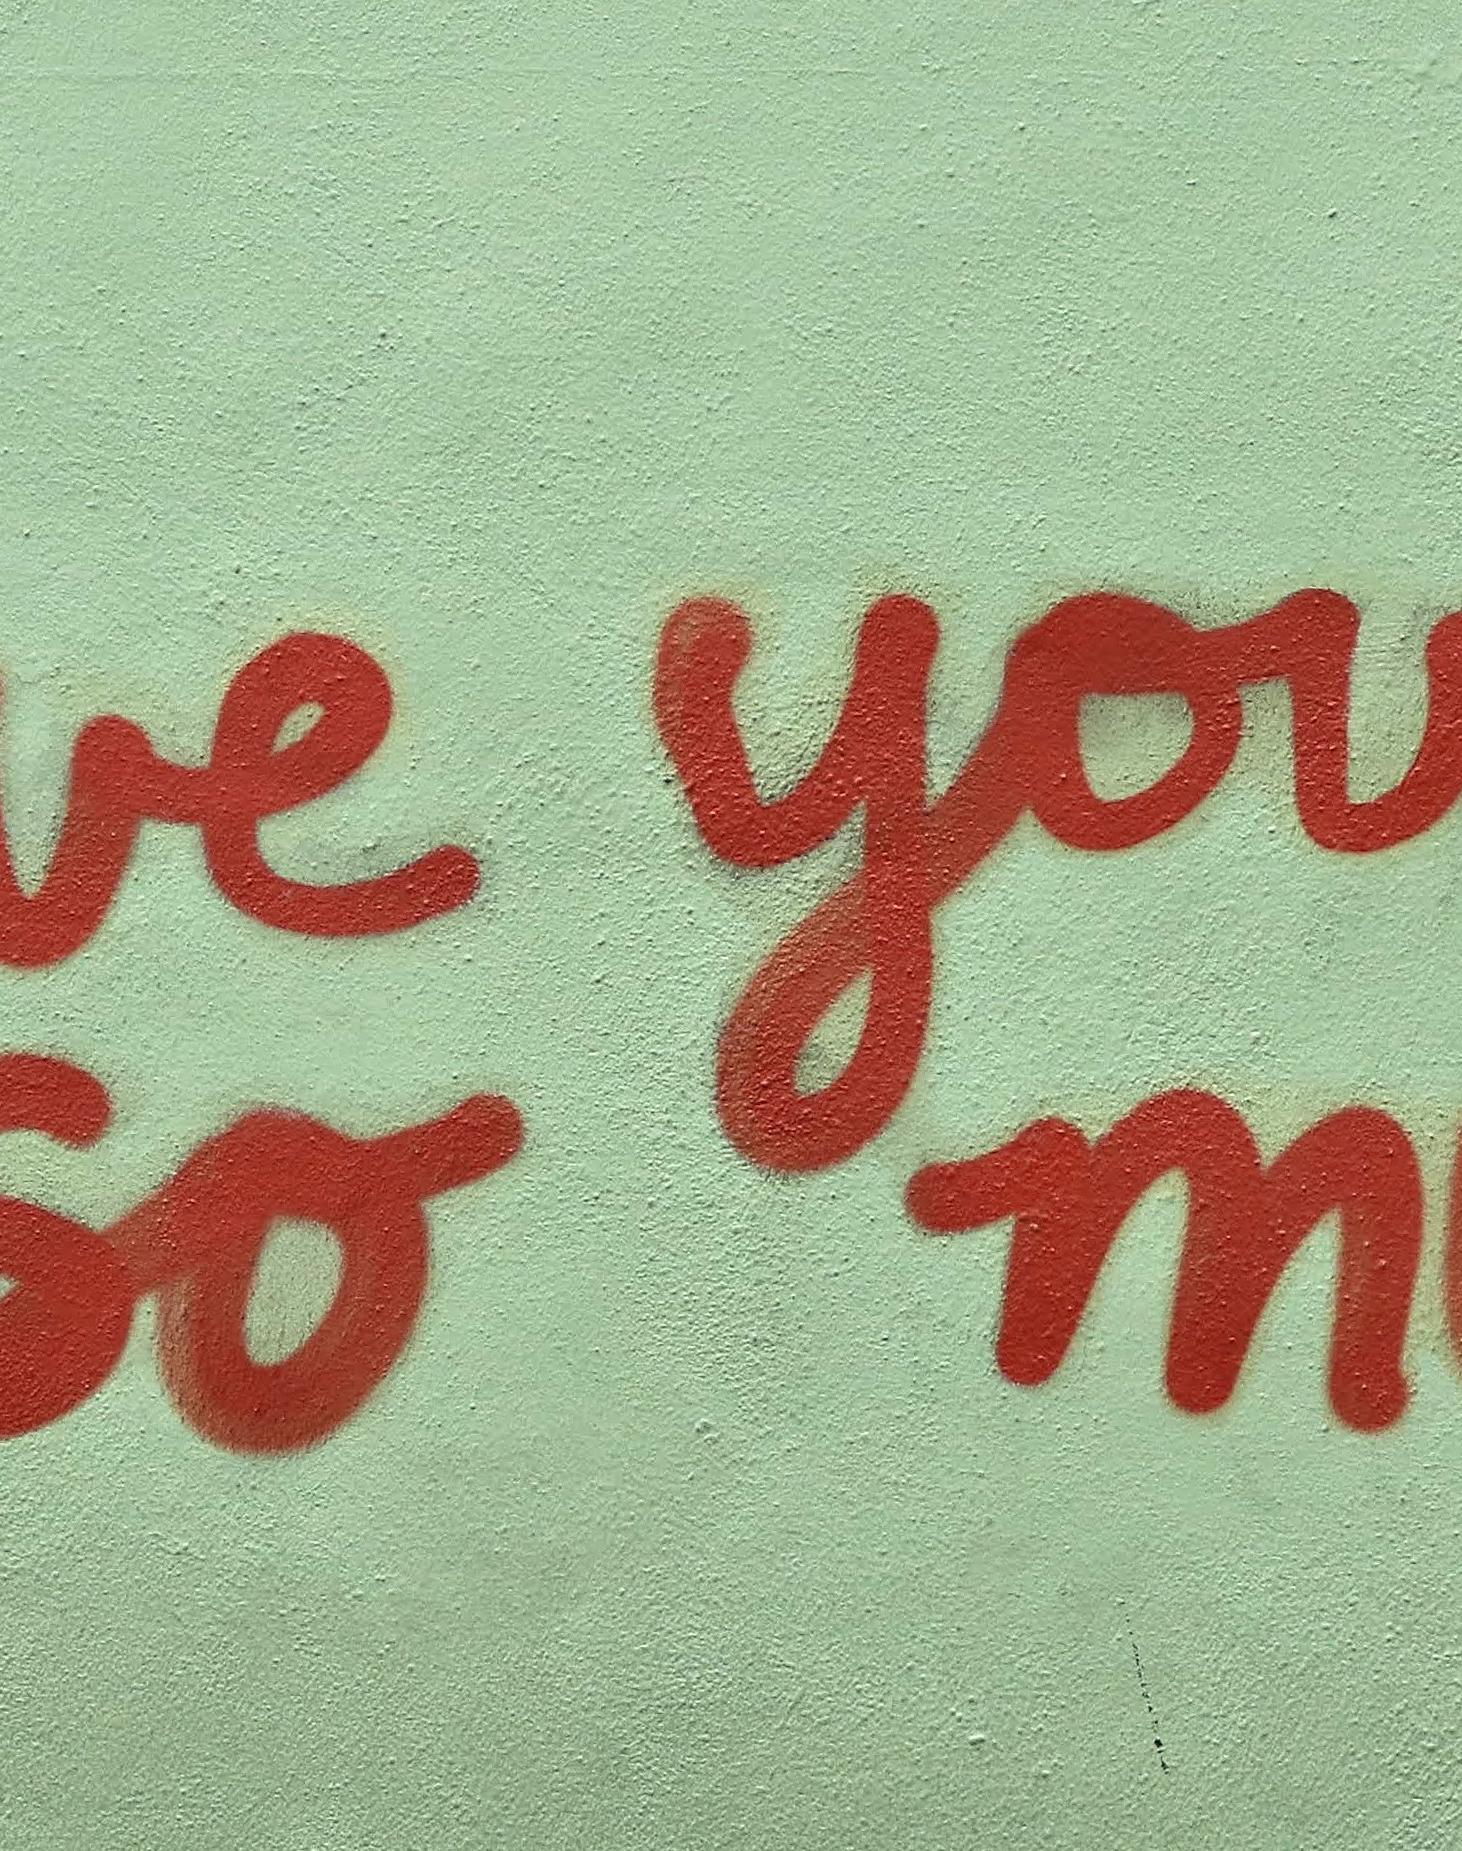 ve you
so m